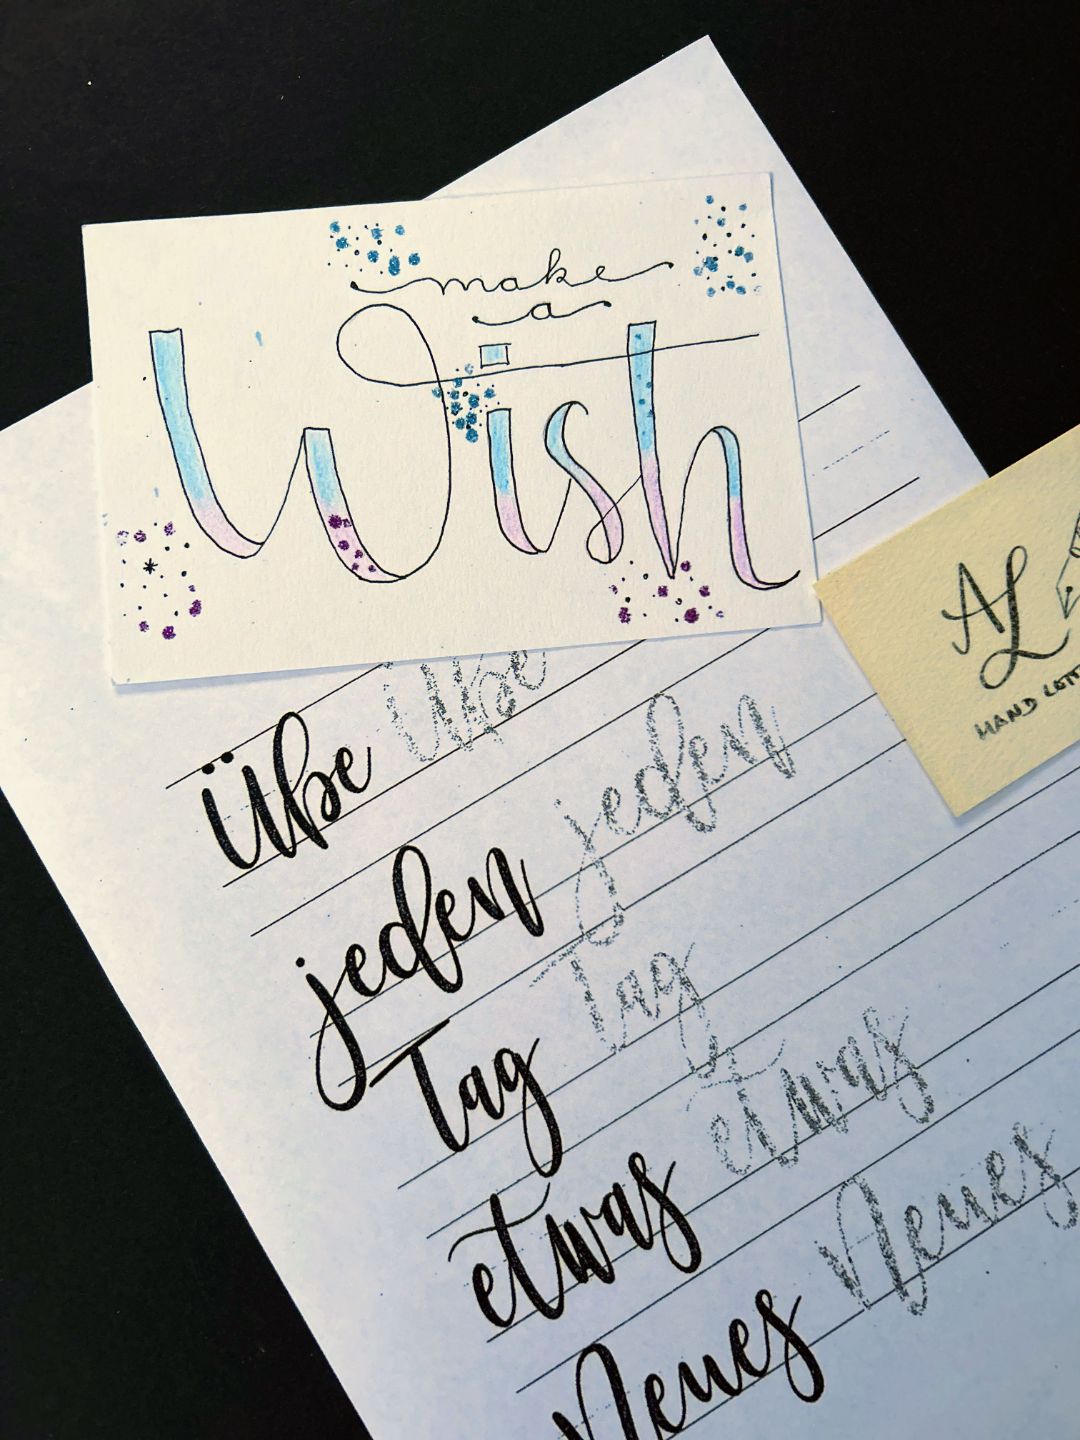 make
a
Wish
AL
HAND LETT
Übe Übe
jeden jeden
Tag Tag
etwas etwas
Neues Neues